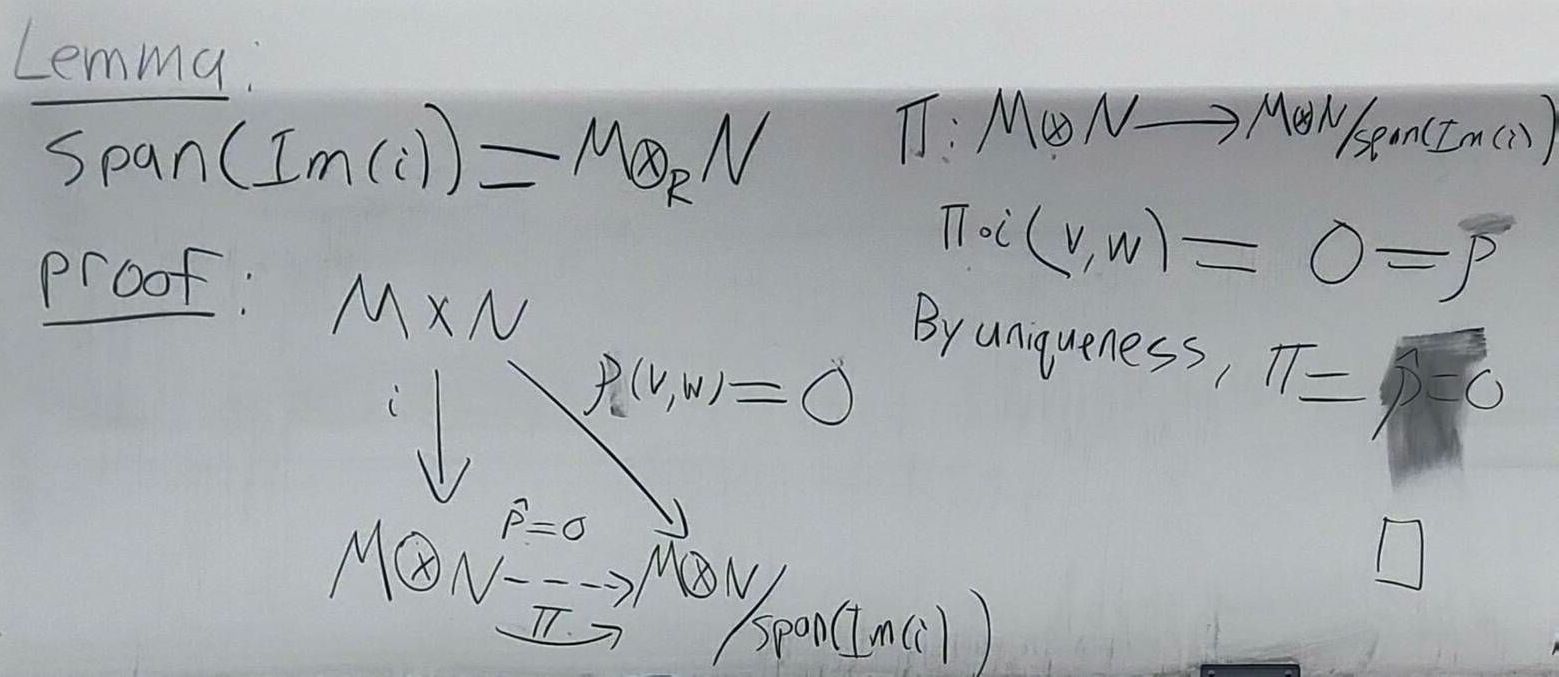 Lemma:
Span(Im(i)) = M⊗_R N
proof:
M × N
i
ρ(v,w) = 0
ρ̂=0
M⊗N ⇢ M⊗N/span(Im(i))
π
π: M⊗N → M⊗N/span(Im(i))
π∘i(v,w) = 0 = ρ
By uniqueness, π = ρ̂=0
□